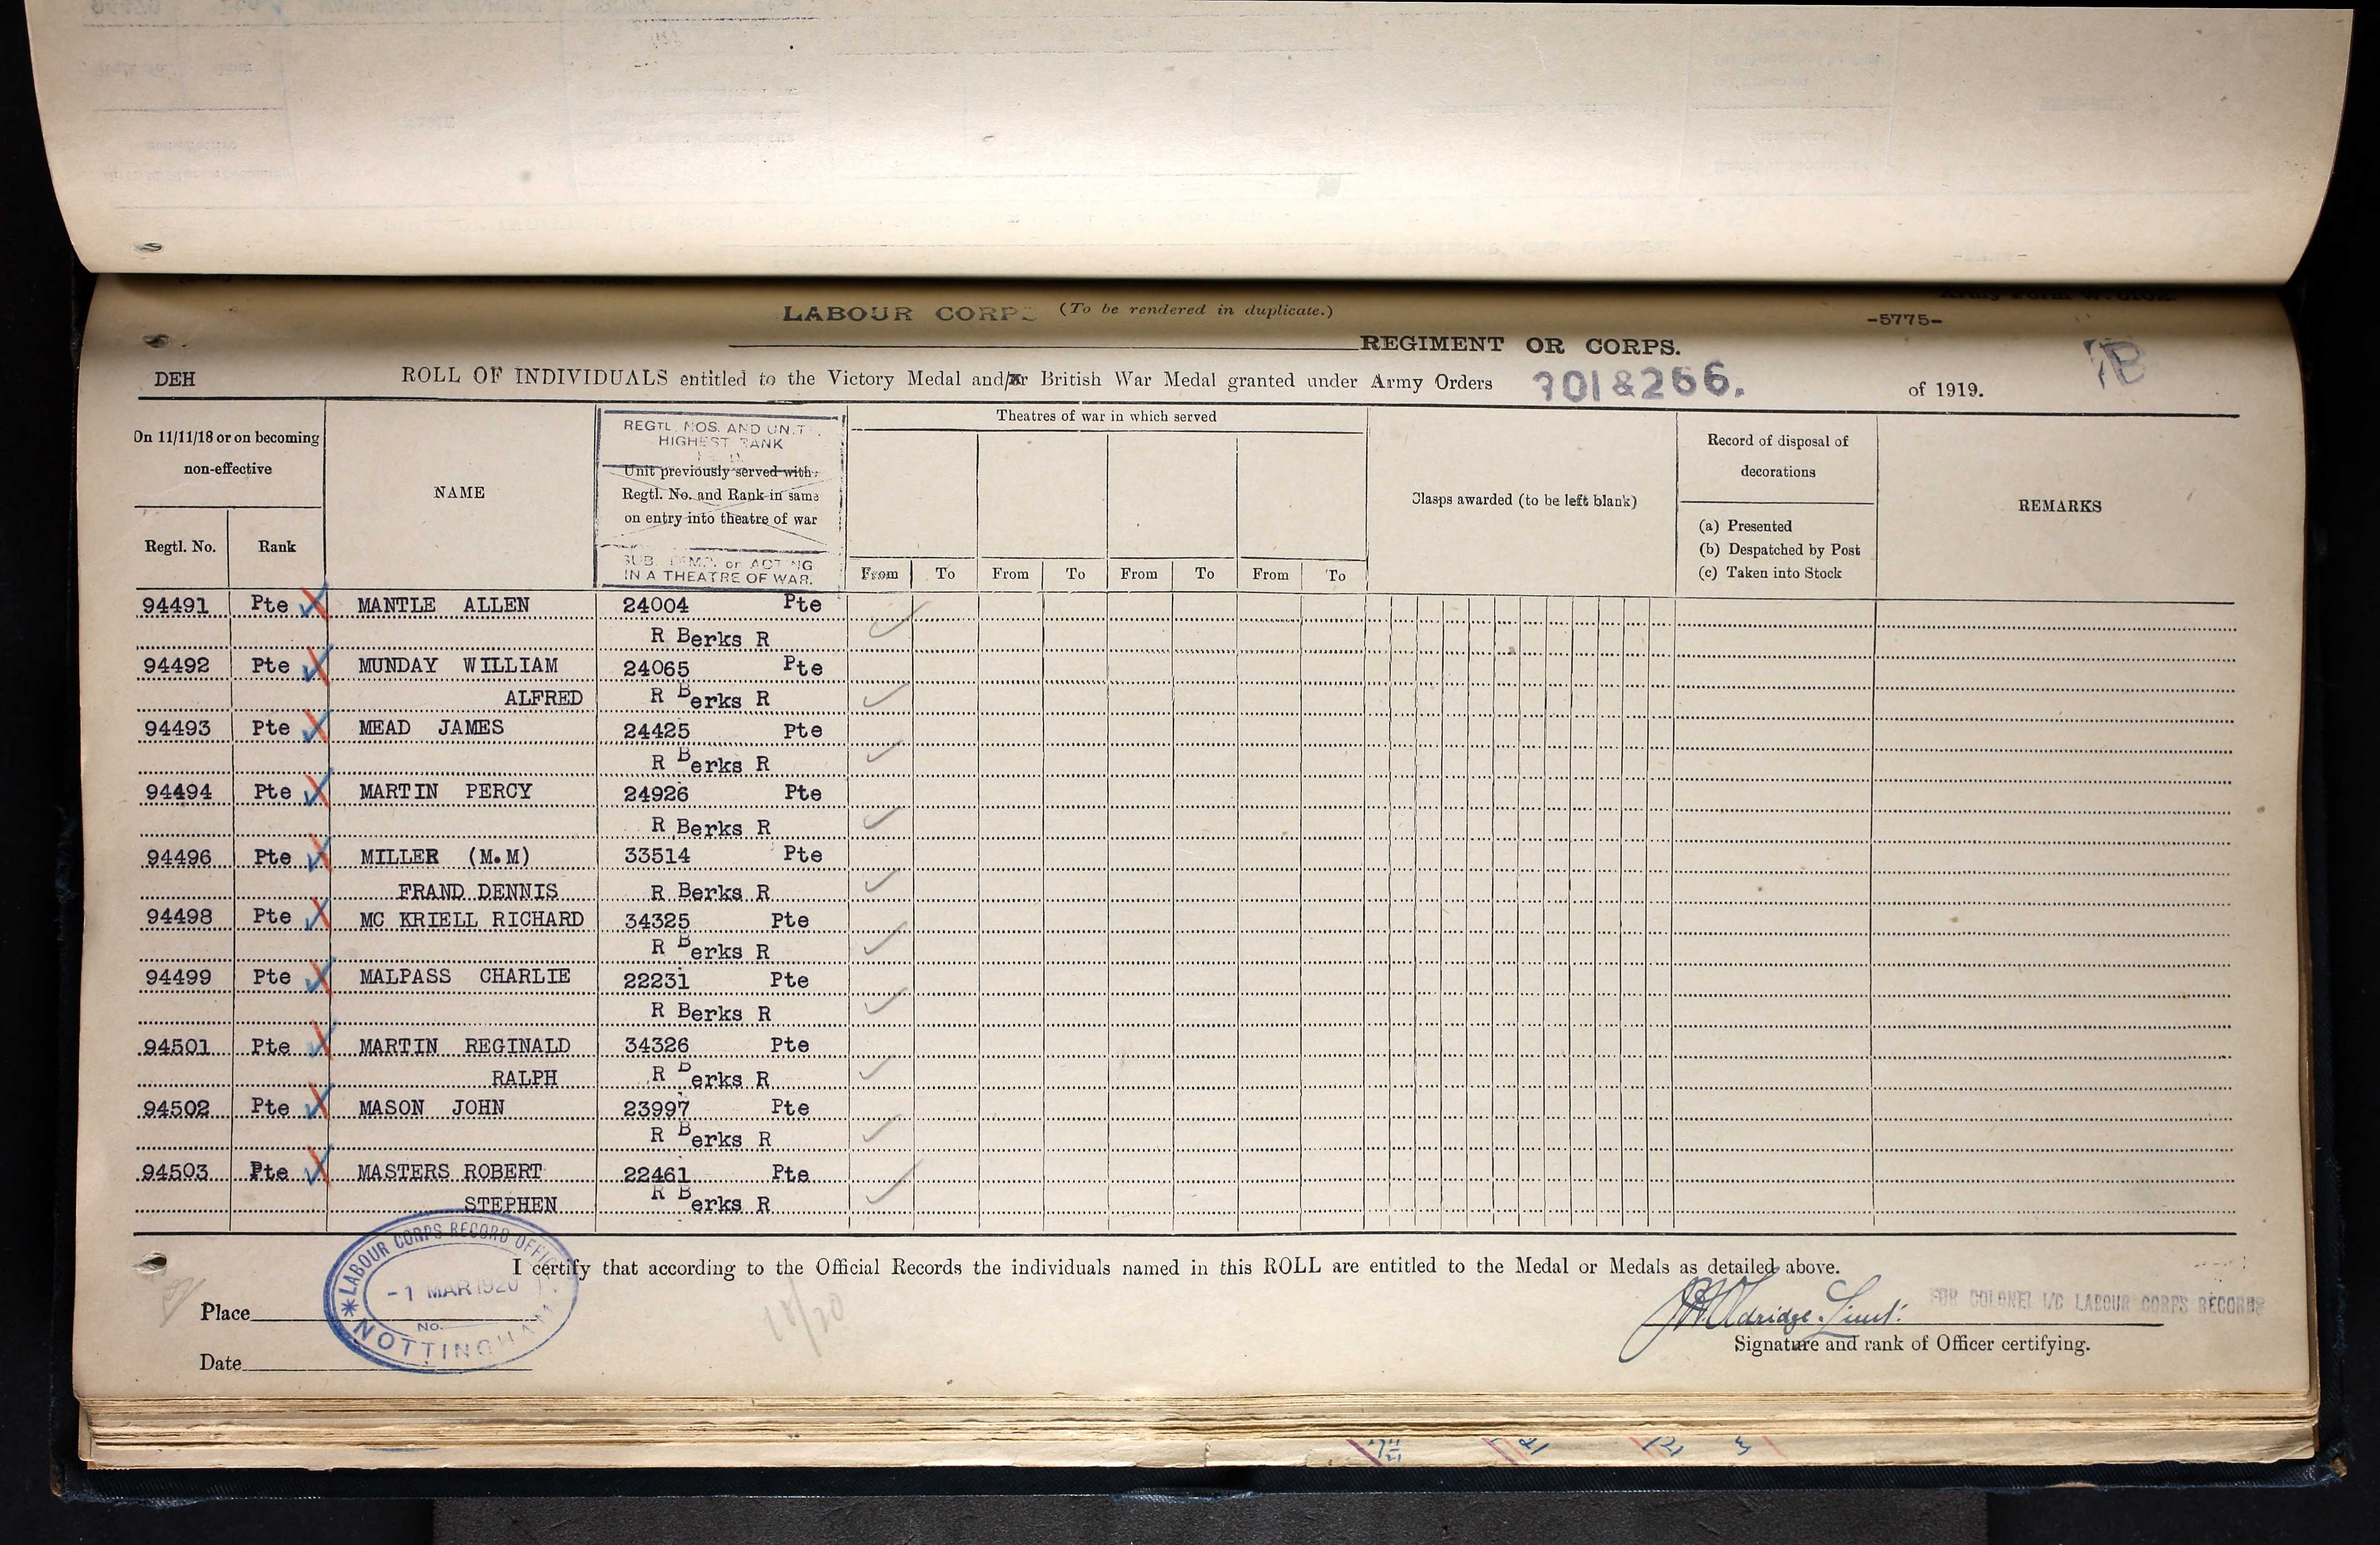 LABOUR CORPS (To be rendered in duplicate.)
-5775-
REGIMENT OR CORPS.
DEH ROLL OF INDIVIDUALS entitled to the Victory Medal and/or British War Medal granted under Army Orders 301 & 266. of 1919.
On 11/11/18 or on becoming non-effective
Regtl. No. Rank
NAME
REGTL. NOS. AND UNIT
HIGHEST RANK
Unit previously served with.
Regtl. No. and Rank in same
on entry into theatre of war
SUB. TEMP. or ACTING
IN A THEATRE OF WAR.
Theatres of war in which served
From To From To From To From To
Clasps awarded (to be left blank)
Record of disposal of
decorations
(a) Presented
(b) Despatched by Post
(c) Taken into Stock
REMARKS
94491 Pte MANTLE ALLEN 24004 Pte
R Berks R
94492 Pte MUNDAY WILLIAM 24065 Pte
ALFRED R Berks R
94493 Pte MEAD JAMES 24425 Pte
R Berks R
94494 Pte MARTIN PERCY 24926 Pte
R Berks R
94496 Pte MILLER (M.M) 33514 Pte
FRAND DENNIS R Berks R
94498 Pte MC KRIELL RICHARD 34325 Pte
R Berks R
94499 Pte MALPASS CHARLIE 22231 Pte
R Berks R
94501 Pte MARTIN REGINALD 34326 Pte
RALPH R Berks R
94502 Pte MASON JOHN 23997 Pte
R Berks R
94503 Pte MASTERS ROBERT 22461 Pte
STEPHEN R Berks R
I certify that according to the Official Records the individuals named in this ROLL are entitled to the Medal or Medals as detailed above.
LABOUR CORPS RECORD OFFICE
-1 MAR 1920
No.
NOTTINGHAM
Place
Date
Aldridge Lieut. FOR COLONEL I/C LABOUR CORPS RECORDS
Signature and rank of Officer certifying.